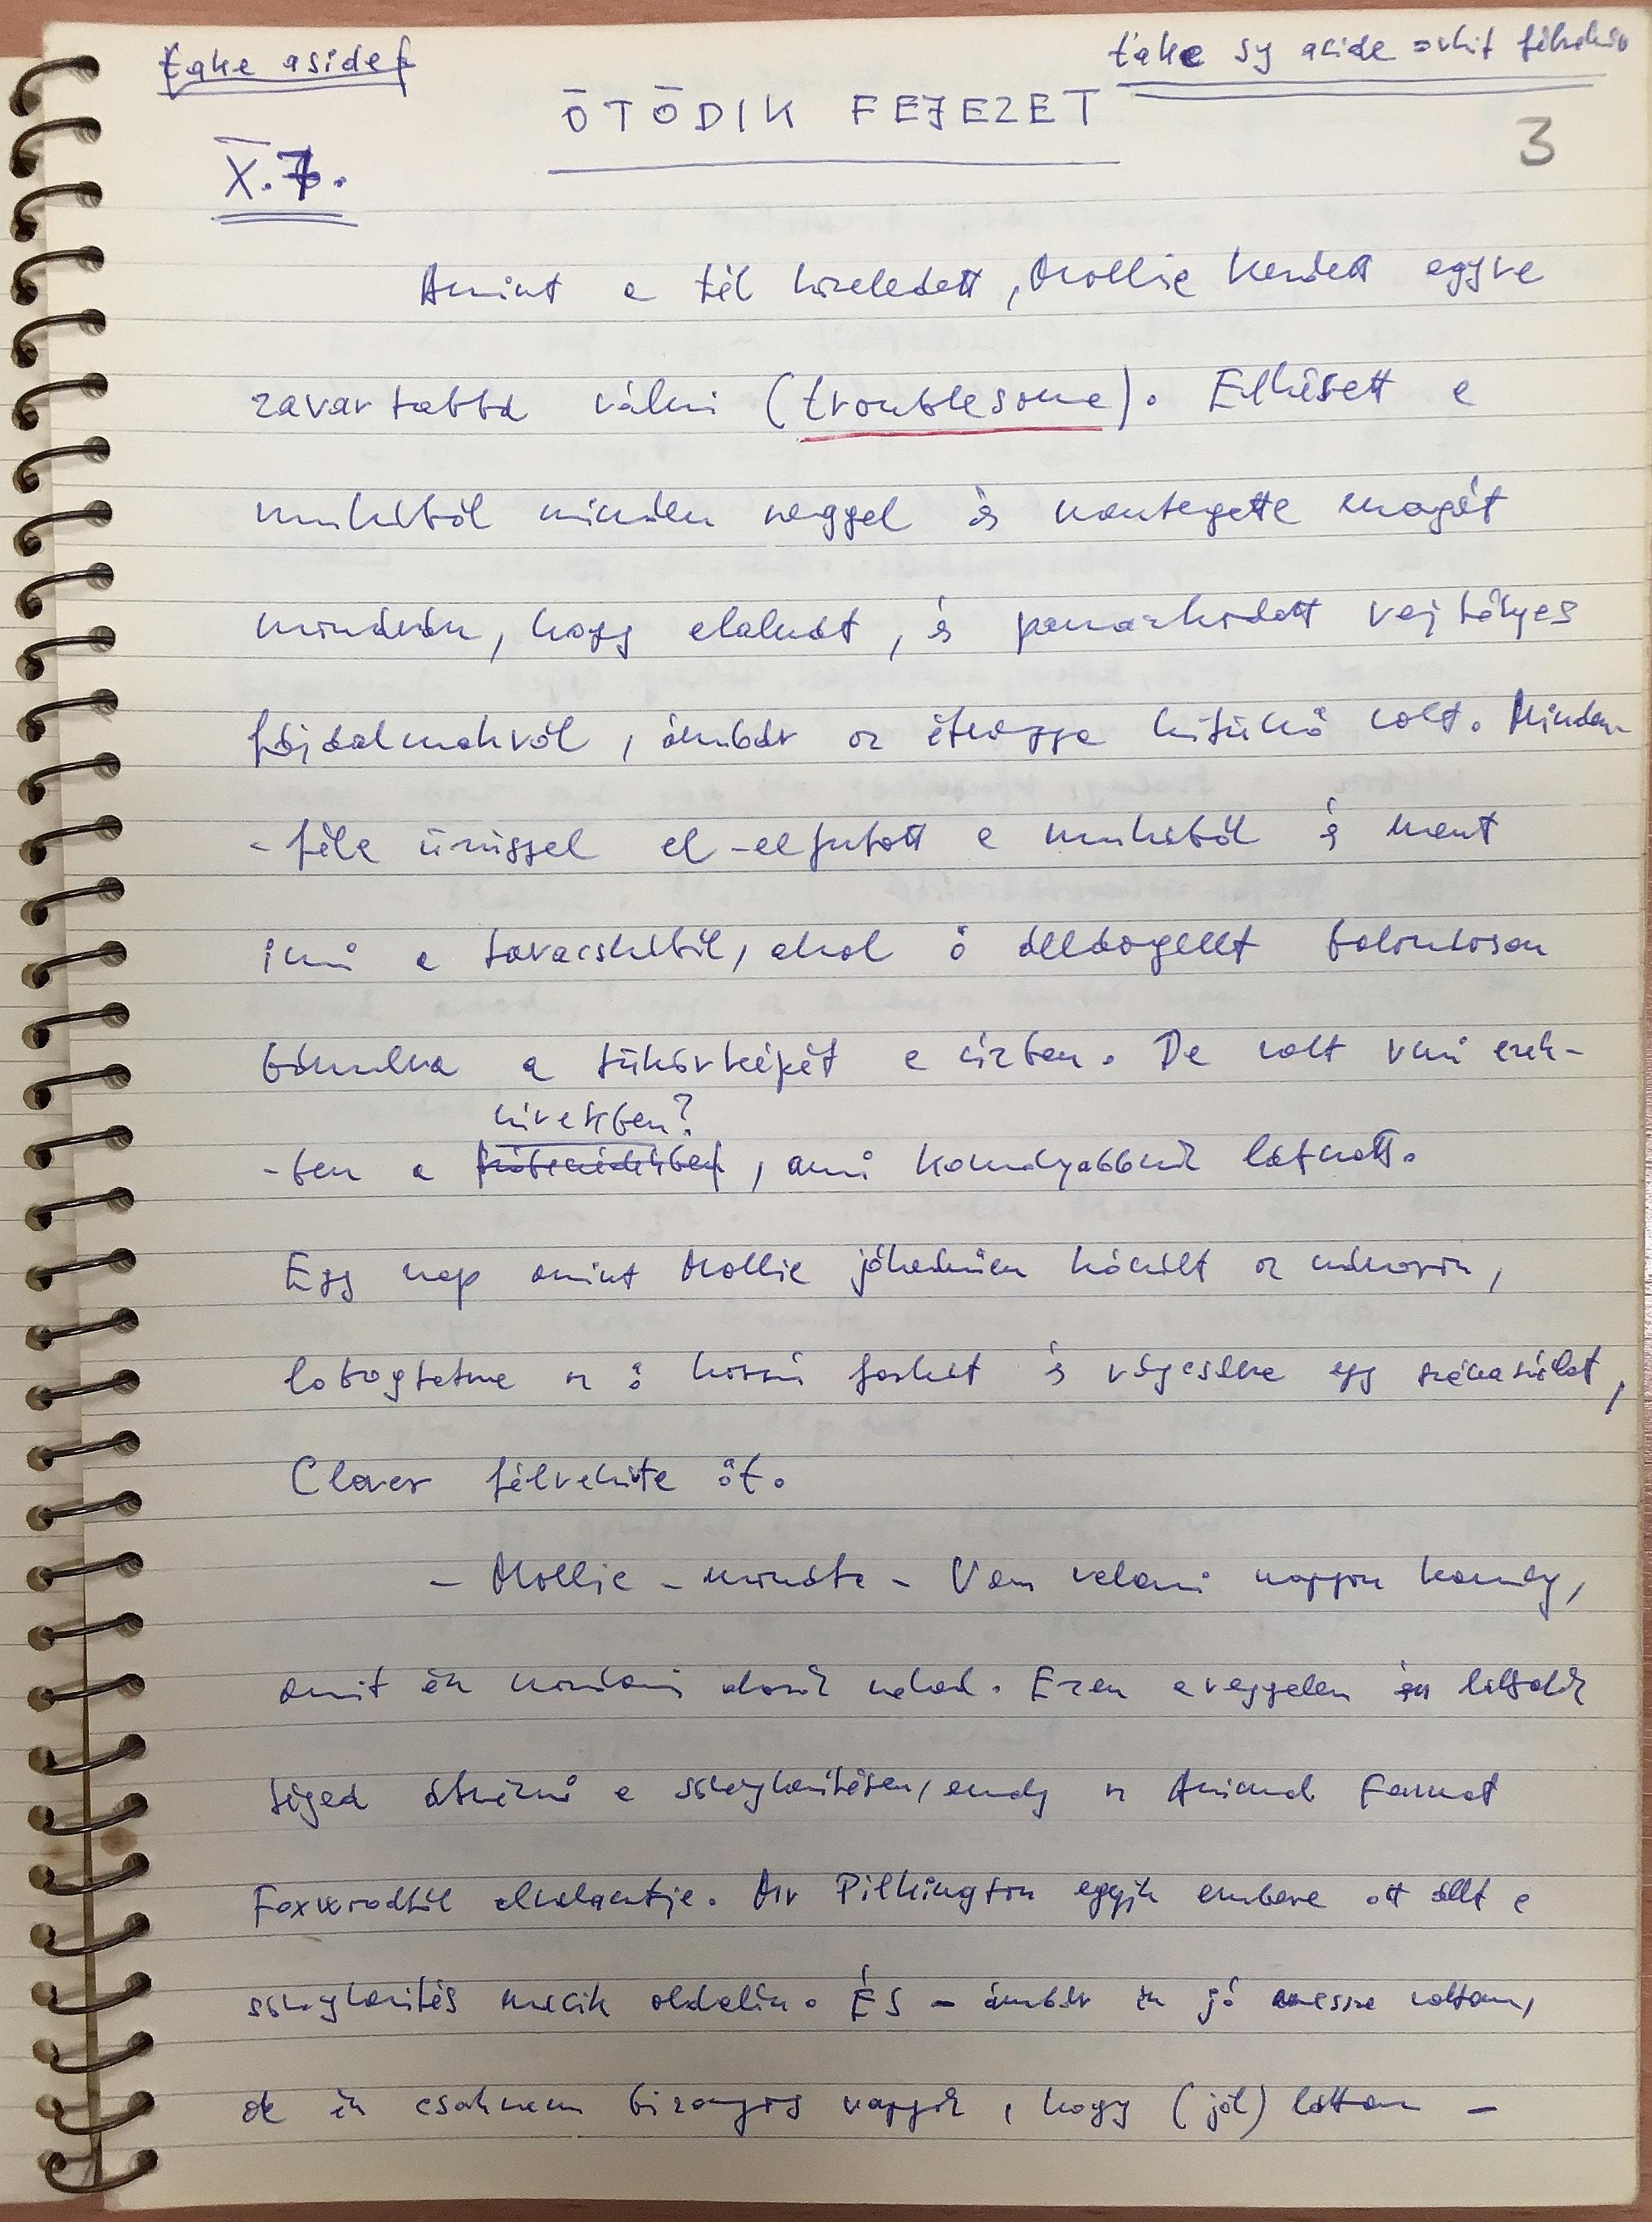 take aside
take sy aside = vkit félrehív
ÖTÖDIK FEJEZET
3
X.7.
Amint a tél közeledett, Mollie kezdett egyre
zavartabbá válni (troublesome). Elkésett a
munkából minden reggel és mentegette magát
mondván, hogy elaludt, és panaszkodott rejtélyes
fájdalmakról, ámbár az étvágya kitűnő volt. Minden-
-féle ürüggyel el-elfutott a munkából és ment
inni a tavacskából, ahol ő álldogált bolondosan
bámulva a tükörképét a vízben. De volt vmi ezek-
hírekben?
-ben a , ami komolyabbnak látszott.
Egy nap amint Mollie jókedvűen kószált az udvaron,
lobogtatva az ő hosszú farkát és rágcsálva egy szénaszálat,
Clover félrehívta őt.
- Mollie - mondta - Van valami nagyon komoly,
amit én mondani akarok neked. Ezen a reggelen én láttalak
téged átnézni a sövénykerítésen, amely az Animal Farmot
Foxwoodtól elválasztja. Mr Pilkington egyik embere ott állt a
sövénykerítés másik oldalán. ÉS - ámbár én jó messze voltam,
de én csaknem bizonyos vagyok, hogy (jól) láttam -